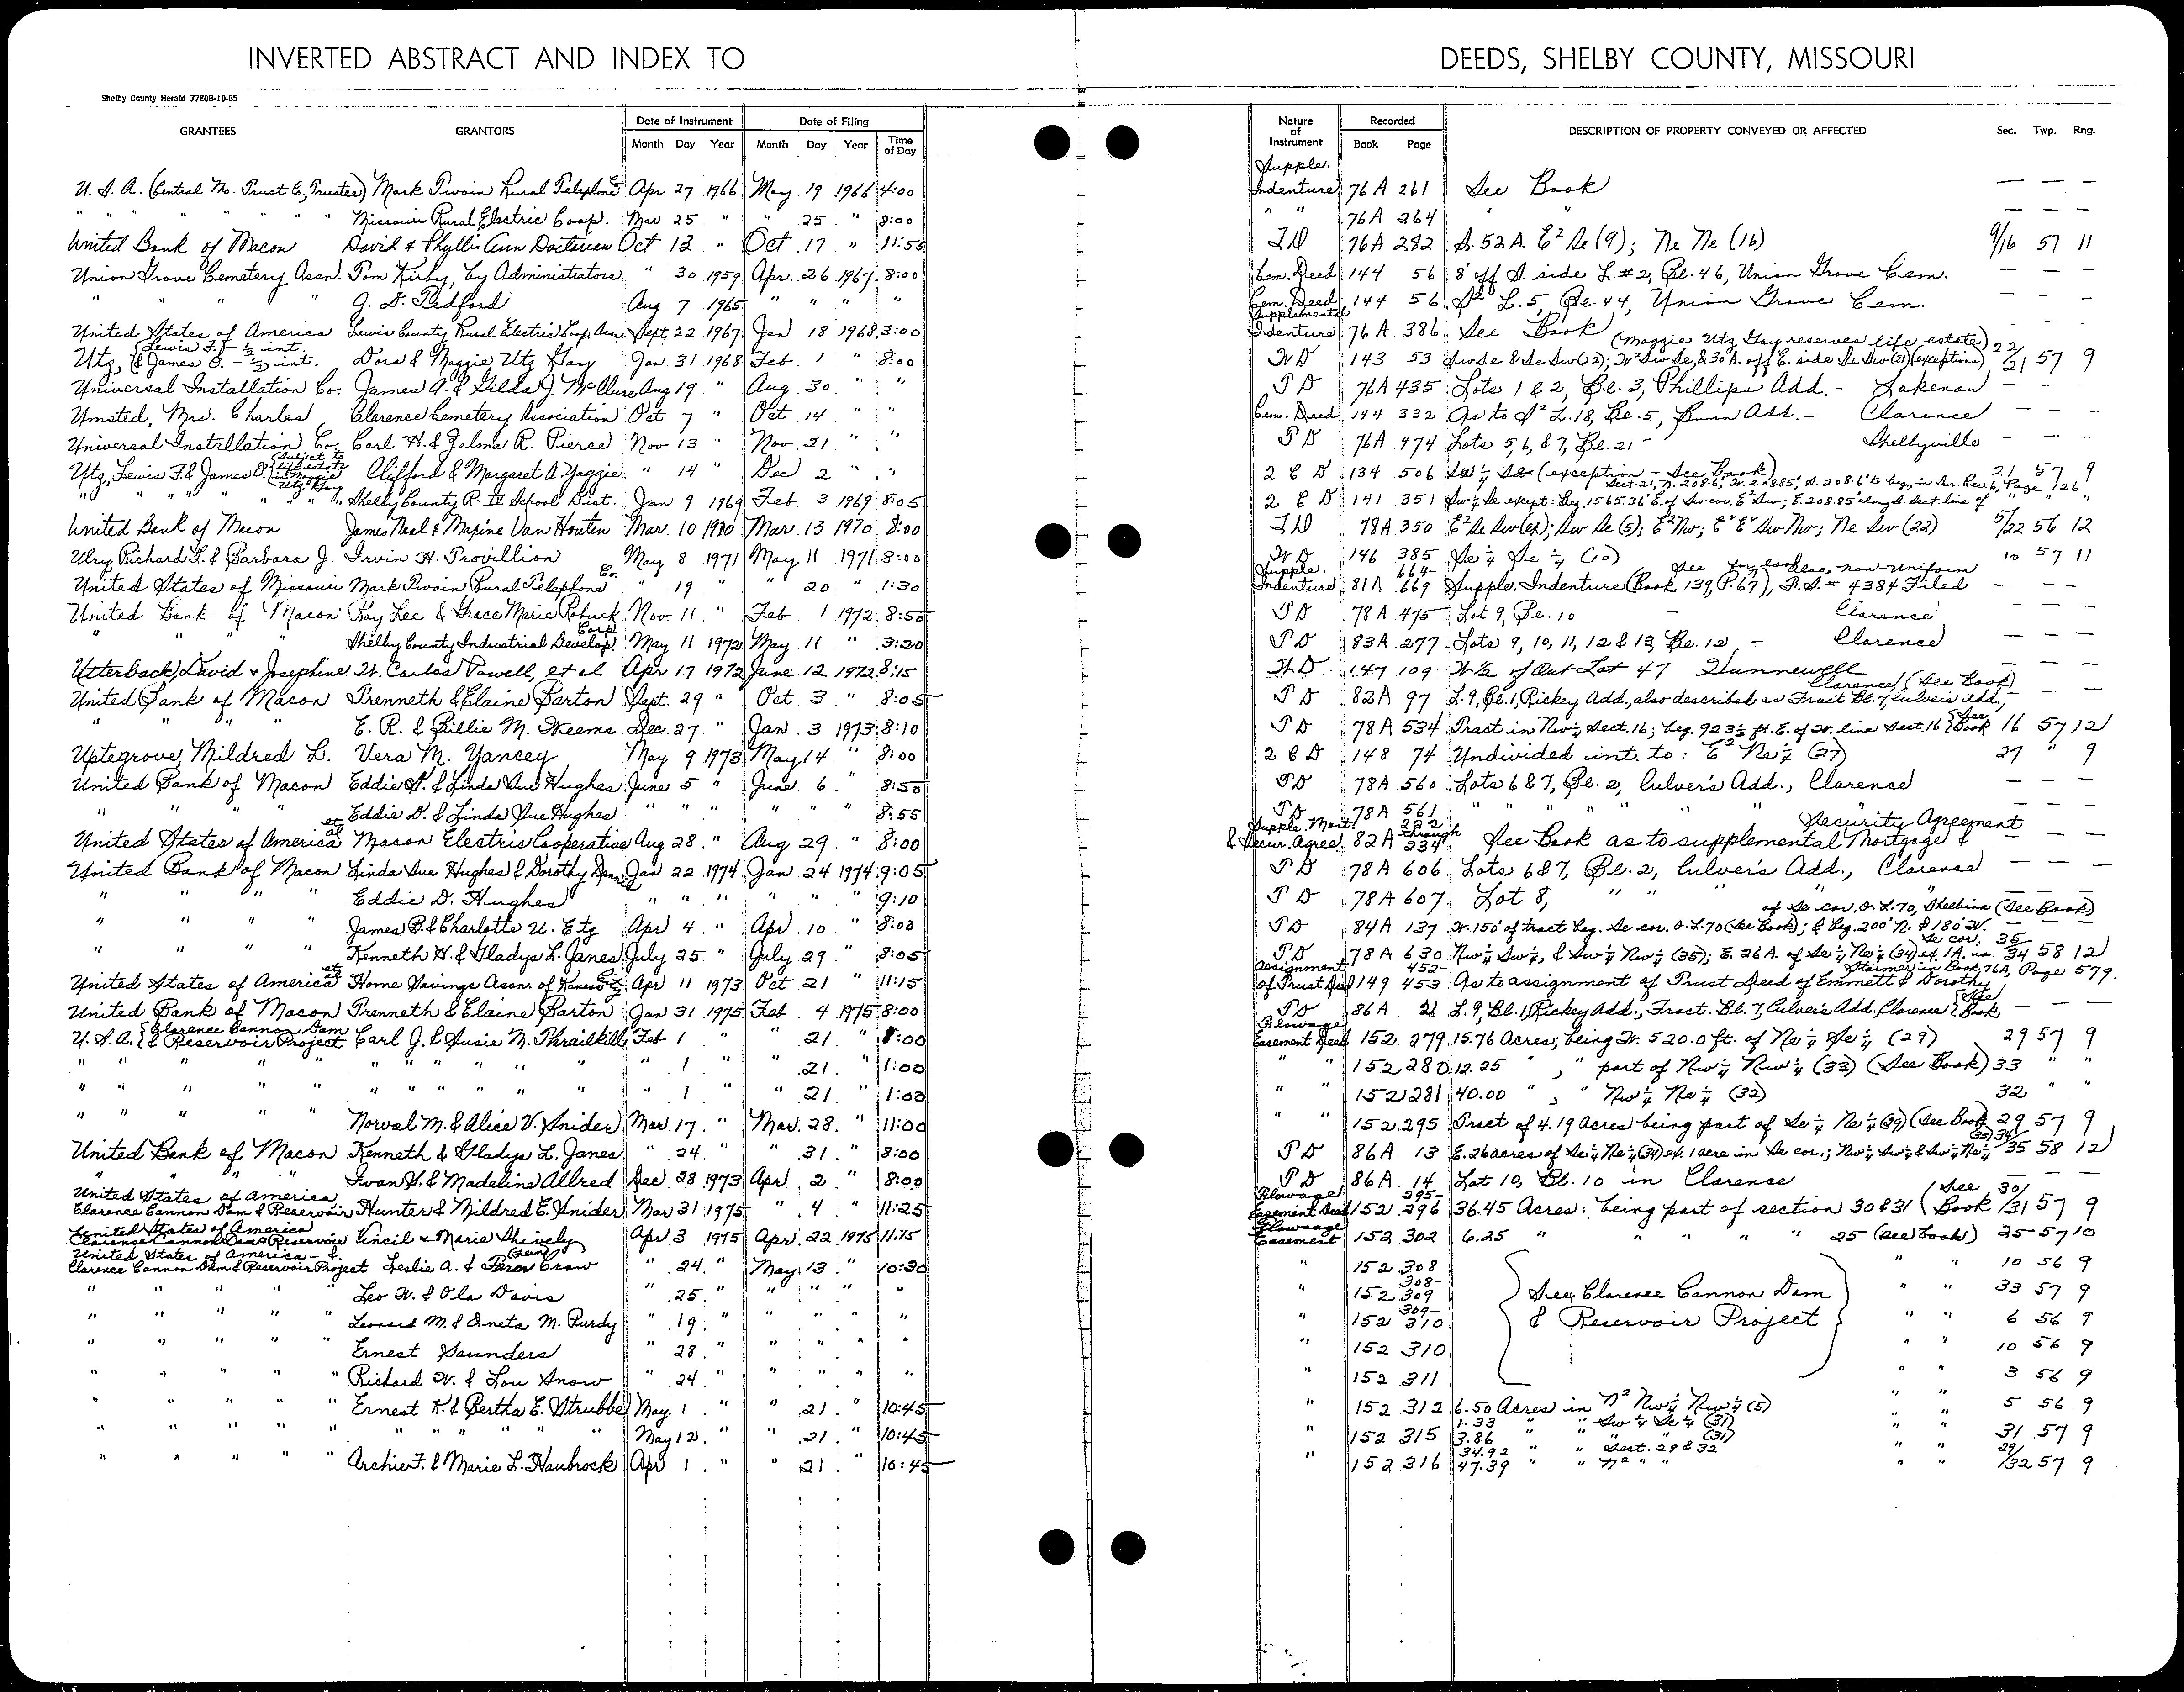 INVERTED ABSTRACT AND INDEX TO DEEDS, SHELBY COUNTY, MISSOURI
Shelby County Herald 7780B-10-65
GRANTEES GRANTORS Date of Instrument Date of Filing Nature of Instrument Recorded DESCRIPTION OF PROPERTY CONVEYED OR AFFECTED Sec. Twp. Rng.
Month Day Year Month Day Year Time of Day Book Page
U. S. A. (Central Mo. Trust Co., Trustee) Mark Twain Rural Telephone Co. Apr. 27 1966 May 19 1966 4:00 Supple. Indenture 76A 261 See Book — — —
" " " " " " Missouri Rural Electric Coop. Mar 25 " " 25 " 8:00 " " 76A 264 " " — — —
United Bank of Macon David & Phyllis Ann Oct 12 " Oct. 17 " 11:55 T D 76A 282 S. 52 A. E² Se (9); Ne Ne (16) 9/16 57 11
Union Grove Cemetery Assn. Tom Kirby, by Administrators " 30 1959 Apr. 26 1967 8:00 Cem. Deed 144 56 8' off S. side L. #2, Bl. 46, Union Grove Cem. — — —
" " " G. D. Pedford Aug 7 1965 " " " " Cem. Deed 144 56 S² L. 5, Bl. 44, Union Grove Cem. — — —
United States of America Lewis County Rural Electric Coop. Assn. Sept. 22 1967 Jan 18 1968 3:00 Supplemental Indenture 76A 386 See Book — — —
Utz, (Lewis F. - ½ int. & James O. - ½ int.) Dora & Maggie Utz Hay Jan 31 1968 Feb. 1 " 8:00 W D 143 53 Sw Se & Se Sw (22); W² Sw Se, & 30 A. off E. side Se Sw (21) (exceptions) (Maggie Utz Hay reserves life estate) 22/21 57 9
Universal Installation Co. James A. & Gilda J. McClure Aug 19 " Aug. 30 " " T D 76A 435 Lots 1 & 2, Bl. 3, Phillips Add. - Lakenan — — —
Umsted, Mrs. Charles Clarence Cemetery Association Oct. 7 " Oct. 14 " " Cem. Deed 144 332 As to S² L. 18, Bl. 5, Bunn Add. - Clarence — — —
Universal Installation Co. Carl H. & Zelma R. Pierce Nov 13 " Nov. 21 " " T D 76A 474 Lots 5, 6, & 7, Bl. 21 - Shelbyville — — —
Utz, Lewis F. & James O. (subject to life estate in Maggie Utz Hay) Clifford & Margaret A. Yaggie " 14 " Dec 2 " " 2 C D 134 506 Sw¼ Se (exception - See Book) 21 57 9
" " " " " Shelby County R-IV School Dist. Jan 9 1969 Feb 3 1969 8:05 2 C D 141 351 Sw¼ Se except: Beg. 1565.36' E. of Sw cor. E² Sw; E. 208.85' along S. Sect. line of Sect. 21, N. 208.6', W. 208.85', S. 208.6' to beg. in Sur. Rec. 6, Page 126 " " "
United Bank of Macon James Neal & Maxine Van Houten Mar. 10 1970 Mar. 13 1970 8:00 T D 78A 350 E² Se Sw (ex); Sw Se (5); E² Nw; E² E² Sw Nw; Ne Sw (22) 5/22 56 12
Ulry, Richard L. & Barbara J. Irvin H. Provillion May 8 1971 May 11 1971 8:00 W D 146 385 Se¼ Se¼ (10) 10 57 11
United States of Missouri Mark Twain Rural Telephone Co. " 19 " " 20 " 1:30 Supple. Indenture 81A 664-669 Supple. Indenture (Book 139, P. 67), F.S. # 4384 Filed — — —
United Bank of Macon Roy Lee & Grace Marie Robuck Nov. 11 " Feb 1 1972 8:50 T D 78A 475 Lot 9, Bl. 10 - Clarence — — —
" " " Shelby County Industrial Develop. Corp. May 11 1972 May 11 " 3:20 T D 83A 277 Lots 9, 10, 11, 12 & 13, Bl. 12 - Clarence — — —
Utterback, David & Josephine W. Carlos Powell, et al Apr. 17 1972 June 12 1972 8:15 W D 147 109 W½ of Out Lot 47 Hunnewell — — —
United Bank of Macon Trenneth & Elaine Barton Sept. 29 " Oct. 3 " 8:05 T D 82A 97 L. 9, Bl. 1, Rickey Add., also described as Fract. Bl. 7, Culver's Add., Clarence (See Book) — — —
" " " E. R. & Billie M. Weems Dec. 27 " Jan 3 1973 8:10 T D 78A 534 Tract in Nw¼ Sect. 16; beg. 923½ ft. E. of W. line Sect. 16 (See Book) 16 57 12
Uptegrove, Mildred L. Vera M. Yancey May 9 1973 May 14 " 8:00 2 C D 148 74 Undivided int. to: E² Ne¼ (27) 27 " 9
United Bank of Macon Eddie D. & Linda Sue Hughes June 5 " June 6 " 8:50 T D 78A 560 Lots 6 & 7, Bl. 2, Culver's Add., Clarence — — —
" " " Eddie D. & Linda Sue Hughes " " " " " " 8:55 T D 78A 561 " " " " " — — —
United States of America et al Macon Electric Cooperative Aug 28 " Aug 29 " 8:00 Supple. Mort. & Secur. Agree. 82A 222 through 234 See Book as to supplemental Mortgage & Security Agreement — — —
United Bank of Macon Linda Sue Hughes & Dorothy Jan 22 1974 Jan. 24 1974 9:05 T D 78A 606 Lots 6 & 7, Bl. 2, Culver's Add., Clarence — — —
" " " Eddie D. Hughes " " " " " " 9:10 T D 78A 607 Lot 8, " " " " — — —
" " " " James B. & Charlotte U. Etz Apr. 4 " Apr. 10 " 8:00 T D 84A 137 W. 150' of tract beg. Se cor. O. L. 70 (See Book); & beg. 200' N. & 180' W. of Se cor. O. L. 70, Shelbina (See Book) — — —
" " " " Kenneth H. & Gladys L. Janes July 25 " July 29 " 8:05 T D 78A 630 Nw¼ Sw¼, & Sw¼ Nw¼ (35); E. 26 A. of Se¼ Ne¼ (34) ex. 1 A. in Se cor. 35/34 58 12
United States of America et al Home Savings Assn. of Kansas City Apr 11 1973 Oct 21 " 11:15 Assignment of Trust Deed 149 452-453 As to assignment of Trust Deed of Emmett & Dorothy in Book 76A, Page 579.
United Bank of Macon Trenneth & Elaine Barton Jan 31 1975 Feb. 4 1975 8:00 T D 86A 21 L. 9, Bl. 1, Rickey Add., Fract. Bl. 7, Culver's Add. Clarence (See Book) — — —
U. S. A. (Clarence Cannon Dam & Reservoir Project) Carl J. & Susie M. Thrailkill Feb 1 " " 21 " 1:00 Flowage Easement Deed 152 279 15.76 Acres; being W. 520.0 ft. of Ne¼ Se¼ (29) 29 57 9
" " " " " " " " 1 " " 21 " 1:00 " " 152 280 12.25 " ; " part of Nw¼ Nw¼ (33) (See Book) 33 " "
" " " " " " " " 1 " " 21 " 1:00 " " 152 281 40.00 " ; " Nw¼ Ne¼ (32) 32 " "
" " " " Norval M. & Alice V. Snider Mar. 17 " Mar. 28 " 11:00 " " 152 295 Tract of 4.19 Acres being part of Se¼ Ne¼ (29) (See Book) 29 57 9
United Bank of Macon Kenneth & Gladys L. Janes " 24 " " 31 " 8:00 T D 86A 13 E. 26 acres of Se¼ Ne¼ (34) ex. 1 acre in Se cor.; Nw¼ Sw¼ & Sw¼ Nw¼ (35) 34/35 58 12
" " " Ivan S. & Madeline Allred Dec. 28 1973 Apr. 2 " 8:00 T D 86A 14 Lot 10, Bl. 10 in Clarence — — —
United States of America Clarence Cannon Dam & Reservoir Hunter & Mildred E. Snider Mar 31 1975 " 4 " 11:25 Flowage Easement Deed 152 295-296 36.45 Acres: being part of section 30 & 31 (See Book) 30/31 57 9
United States of America Clarence Cannon Dam & Reservoir Vincil & Marie Shively Apr 3 1975 Apr. 22 1975 11:15 Flowage Easement 152 302 6.25 " " " " " 25 (See book) 25 57 10
United States of America - & Clarence Cannon Dam & Reservoir Project Leslie A. & Fern Crow " 24 " May 13 " 10:30 " 152 308 " " 10 56 9
" " " " Leo W. & Ola Davis " 25 " " " " " " 152 308-309 See Clarence Cannon Dam " " 33 57 9
" " " " Leonard M. & Oneta M. Purdy " 19 " " " " " " 152 309-310 & Reservoir Project " " 6 56 9
" " " " Ernest Saunders " 28 " " " " " " 152 310 " " 10 56 9
" " " " Richard W. & Lou Snow " 24 " " " " " " 152 311 " " 3 56 9
" " " " Ernest K. & Bertha E. Strubbe May 1 " " 21 " 10:45 " 152 312 6.50 Acres in N² Nw¼ Nw¼ (5) " " 5 56 9
" " " " " " " " May 12 " " 21 " 10:45 " 152 315 1.33 " " Sw¼ Se¼ (31) 3.86 " " " " (31) " " 31 57 9
" " " " Archie F. & Marie L. Haubrock Apr. 1 " " 21 " 10:45 " 152 316 34.92 " " Sect. 29 & 32 47.39 " " N² " " " " 29/32 57 9